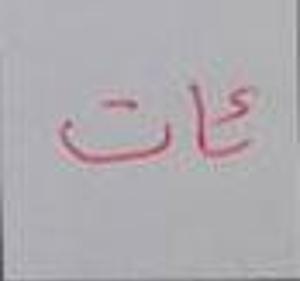 ئات